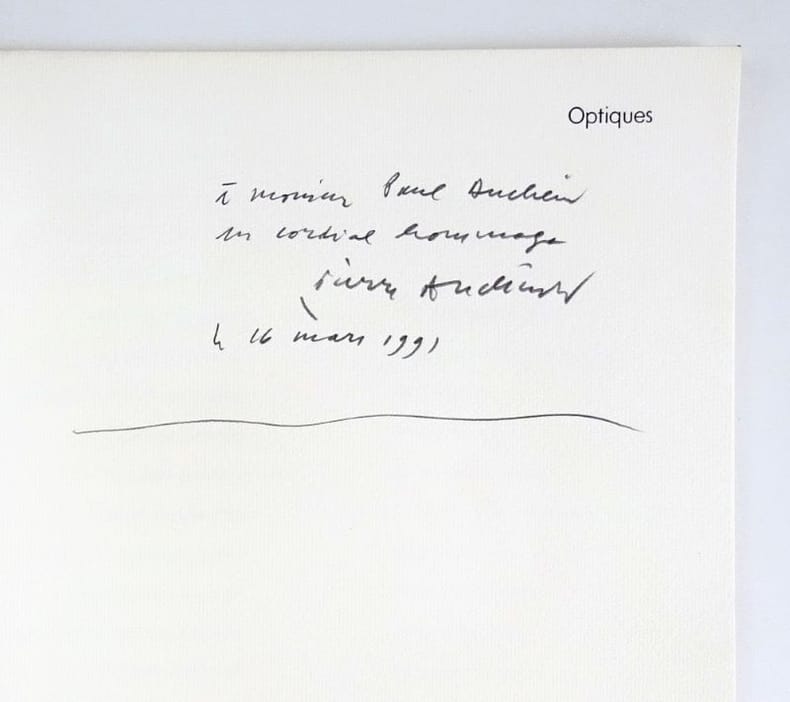 Optiques
à monsieur Paul
en cordial hommage
Pierre
le 16 mars 1991